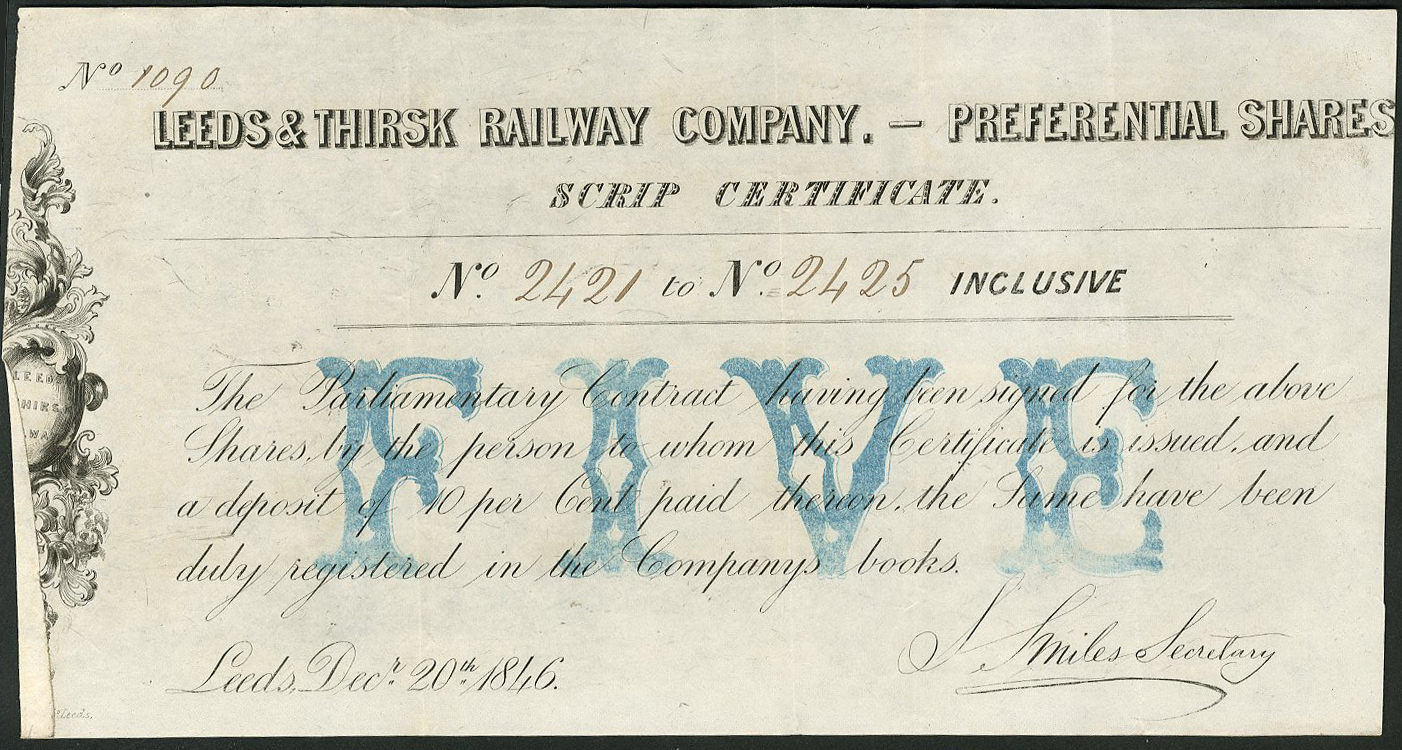 No 1090
LEEDS & THIRSK RAILWAY COMPANY. — PREFERENTIAL SHARES
SCRIP CERTIFICATE.
No. 2421 to No. 2425 INCLUSIVE
FIVE
The Parliamentary Contract having been signed for the above
Shares, by the person to whom this Certificate is issued, and
a deposit of 10 per Cent paid thereon, the Same have been
duly registered in the Companys books.
S. Smiles Secretary
Leeds, Decr. 20th. 1846.
LEEDS
THIRS
WA
Leeds.